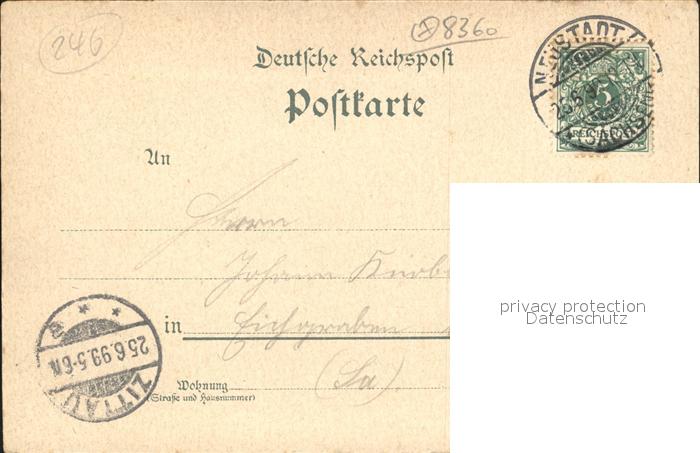 246
8360
Deutsche Reichspost
Postkarte
NEUSTADT
SACHSEN
5
REICHSPOST
An
Herrn
Johann
in Eichgraben
(Sa).
Wohnung
(Straße und Hausnummer)
25.6.99.5-6N.
ZITTAU
privacy protection
Datenschutz